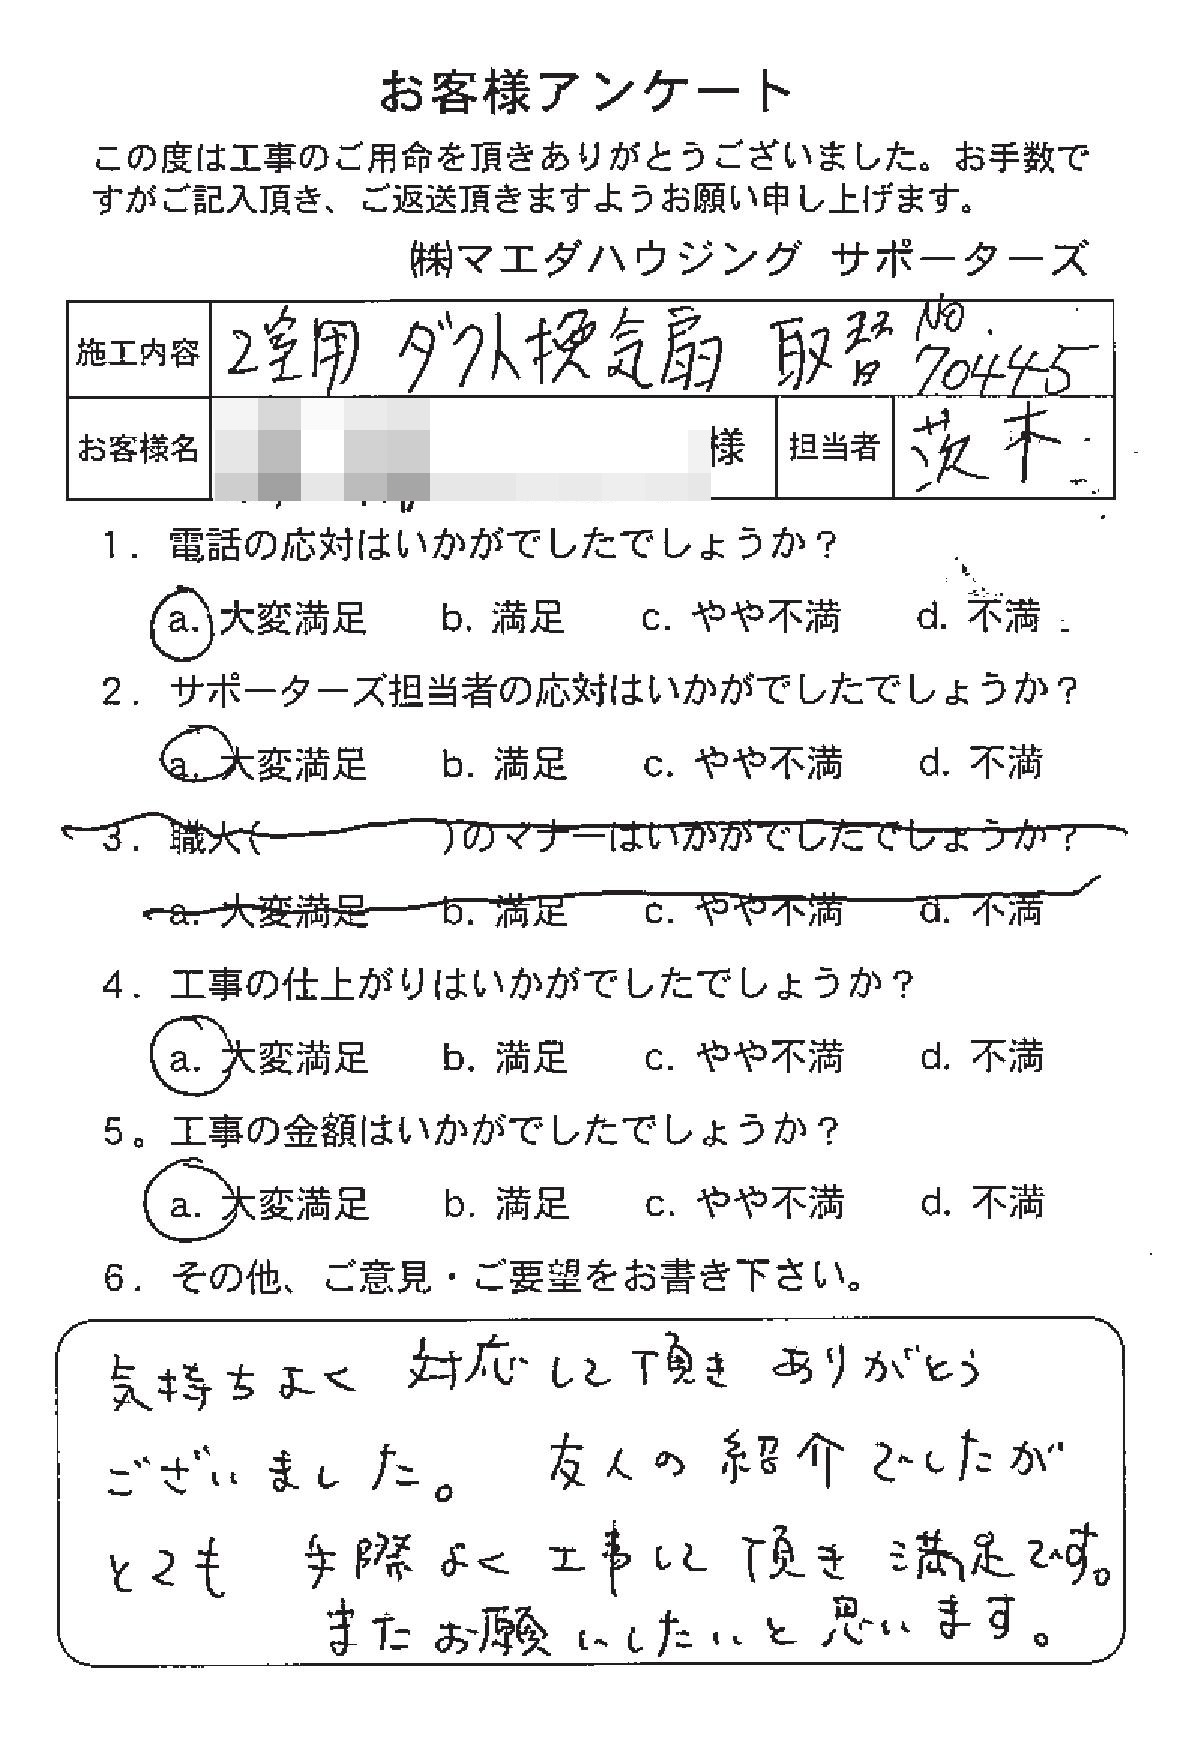 お客様アンケート
この度は工事のご用命を頂きありがとうございました。お手数で
すがご記入頂き、ご返送頂きますようお願い申し上げます。
㈱マエダハウジング サポーターズ
施工内容 2室用 ダクト換気扇 取替 No. 70445
お客様名 様 担当者 茨木
1. 電話の応対はいかがでしたでしょうか?
a. 大変満足 b. 満足 c. やや不満 d. 不満
2. サポーターズ担当者の応対はいかがでしたでしょうか?
a. 大変満足 b. 満足 c. やや不満 d. 不満
3. 職人( )のマナーはいかがでしたでしょうか?
a. 大変満足 b. 満足 c. やや不満 d. 不満
4. 工事の仕上がりはいかがでしたでしょうか?
a. 大変満足 b. 満足 c. やや不満 d. 不満
5。工事の金額はいかがでしたでしょうか?
a. 大変満足 b. 満足 c. やや不満 d. 不満
6. その他、ご意見・ご要望をお書き下さい。
気持ちよく 対応して頂き ありがとう
ございました。 友人の紹介でしたが
とても 手際よく工事して頂き満足です。
またお願いしたいと思います。